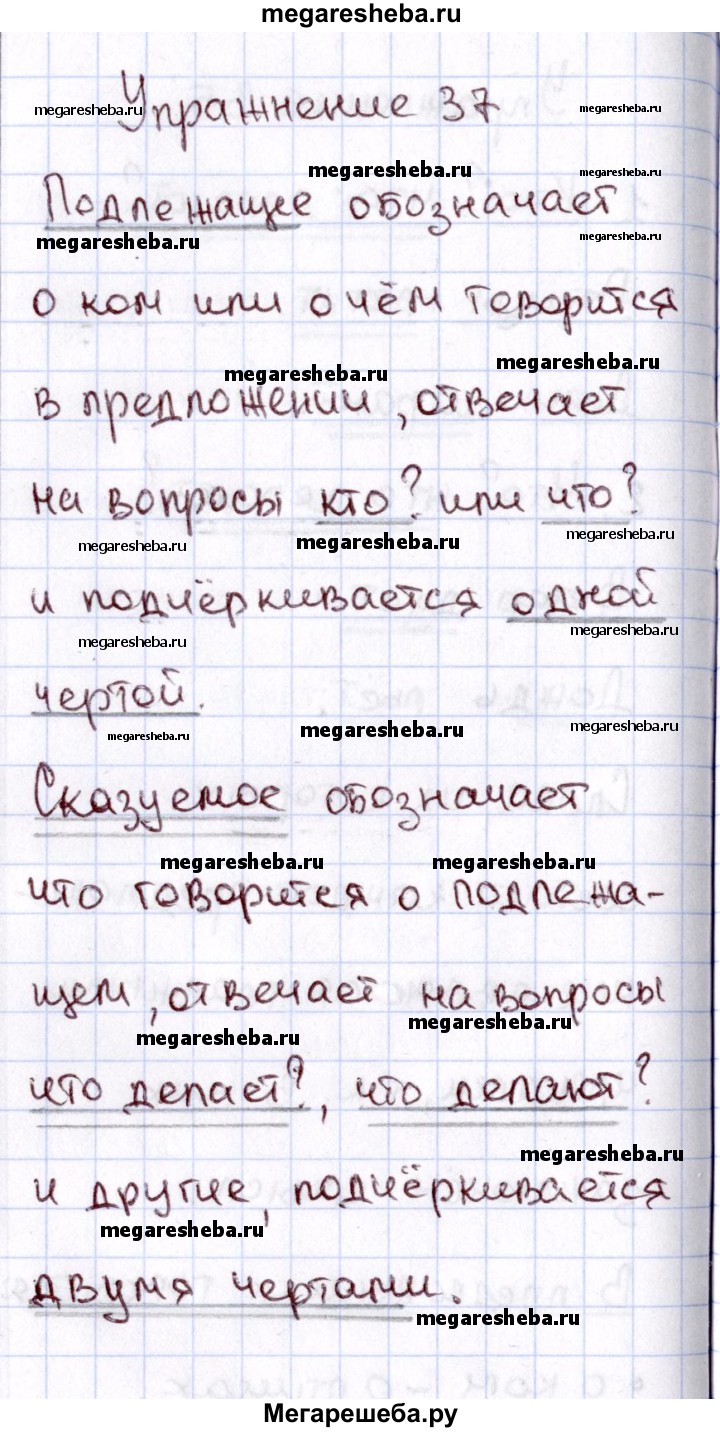 megaresheba.ru
Упражнение 37
megaresheba.ru
megaresheba.ru
megaresheba.ru
megaresheba.ru
Подлежащее обозначает
megaresheba.ru
megaresheba.ru
о ком или о чём говорится
megaresheba.ru
megaresheba.ru
в предложении, отвечает
на вопросы кто? или что?
megaresheba.ru
megaresheba.ru
megaresheba.ru
и подчёркивается одной
megaresheba.ru
megaresheba.ru
чертой.
megaresheba.ru
megaresheba.ru
megaresheba.ru
Сказуемое обозначает
megaresheba.ru
megaresheba.ru
что говорится о подлежа-
щем, отвечает на вопросы
megaresheba.ru
megaresheba.ru
что делает?, что делают?
megaresheba.ru
и другие, подчёркивается
megaresheba.ru
двумя чертами.
megaresheba.ru
Мегарешеба.ру